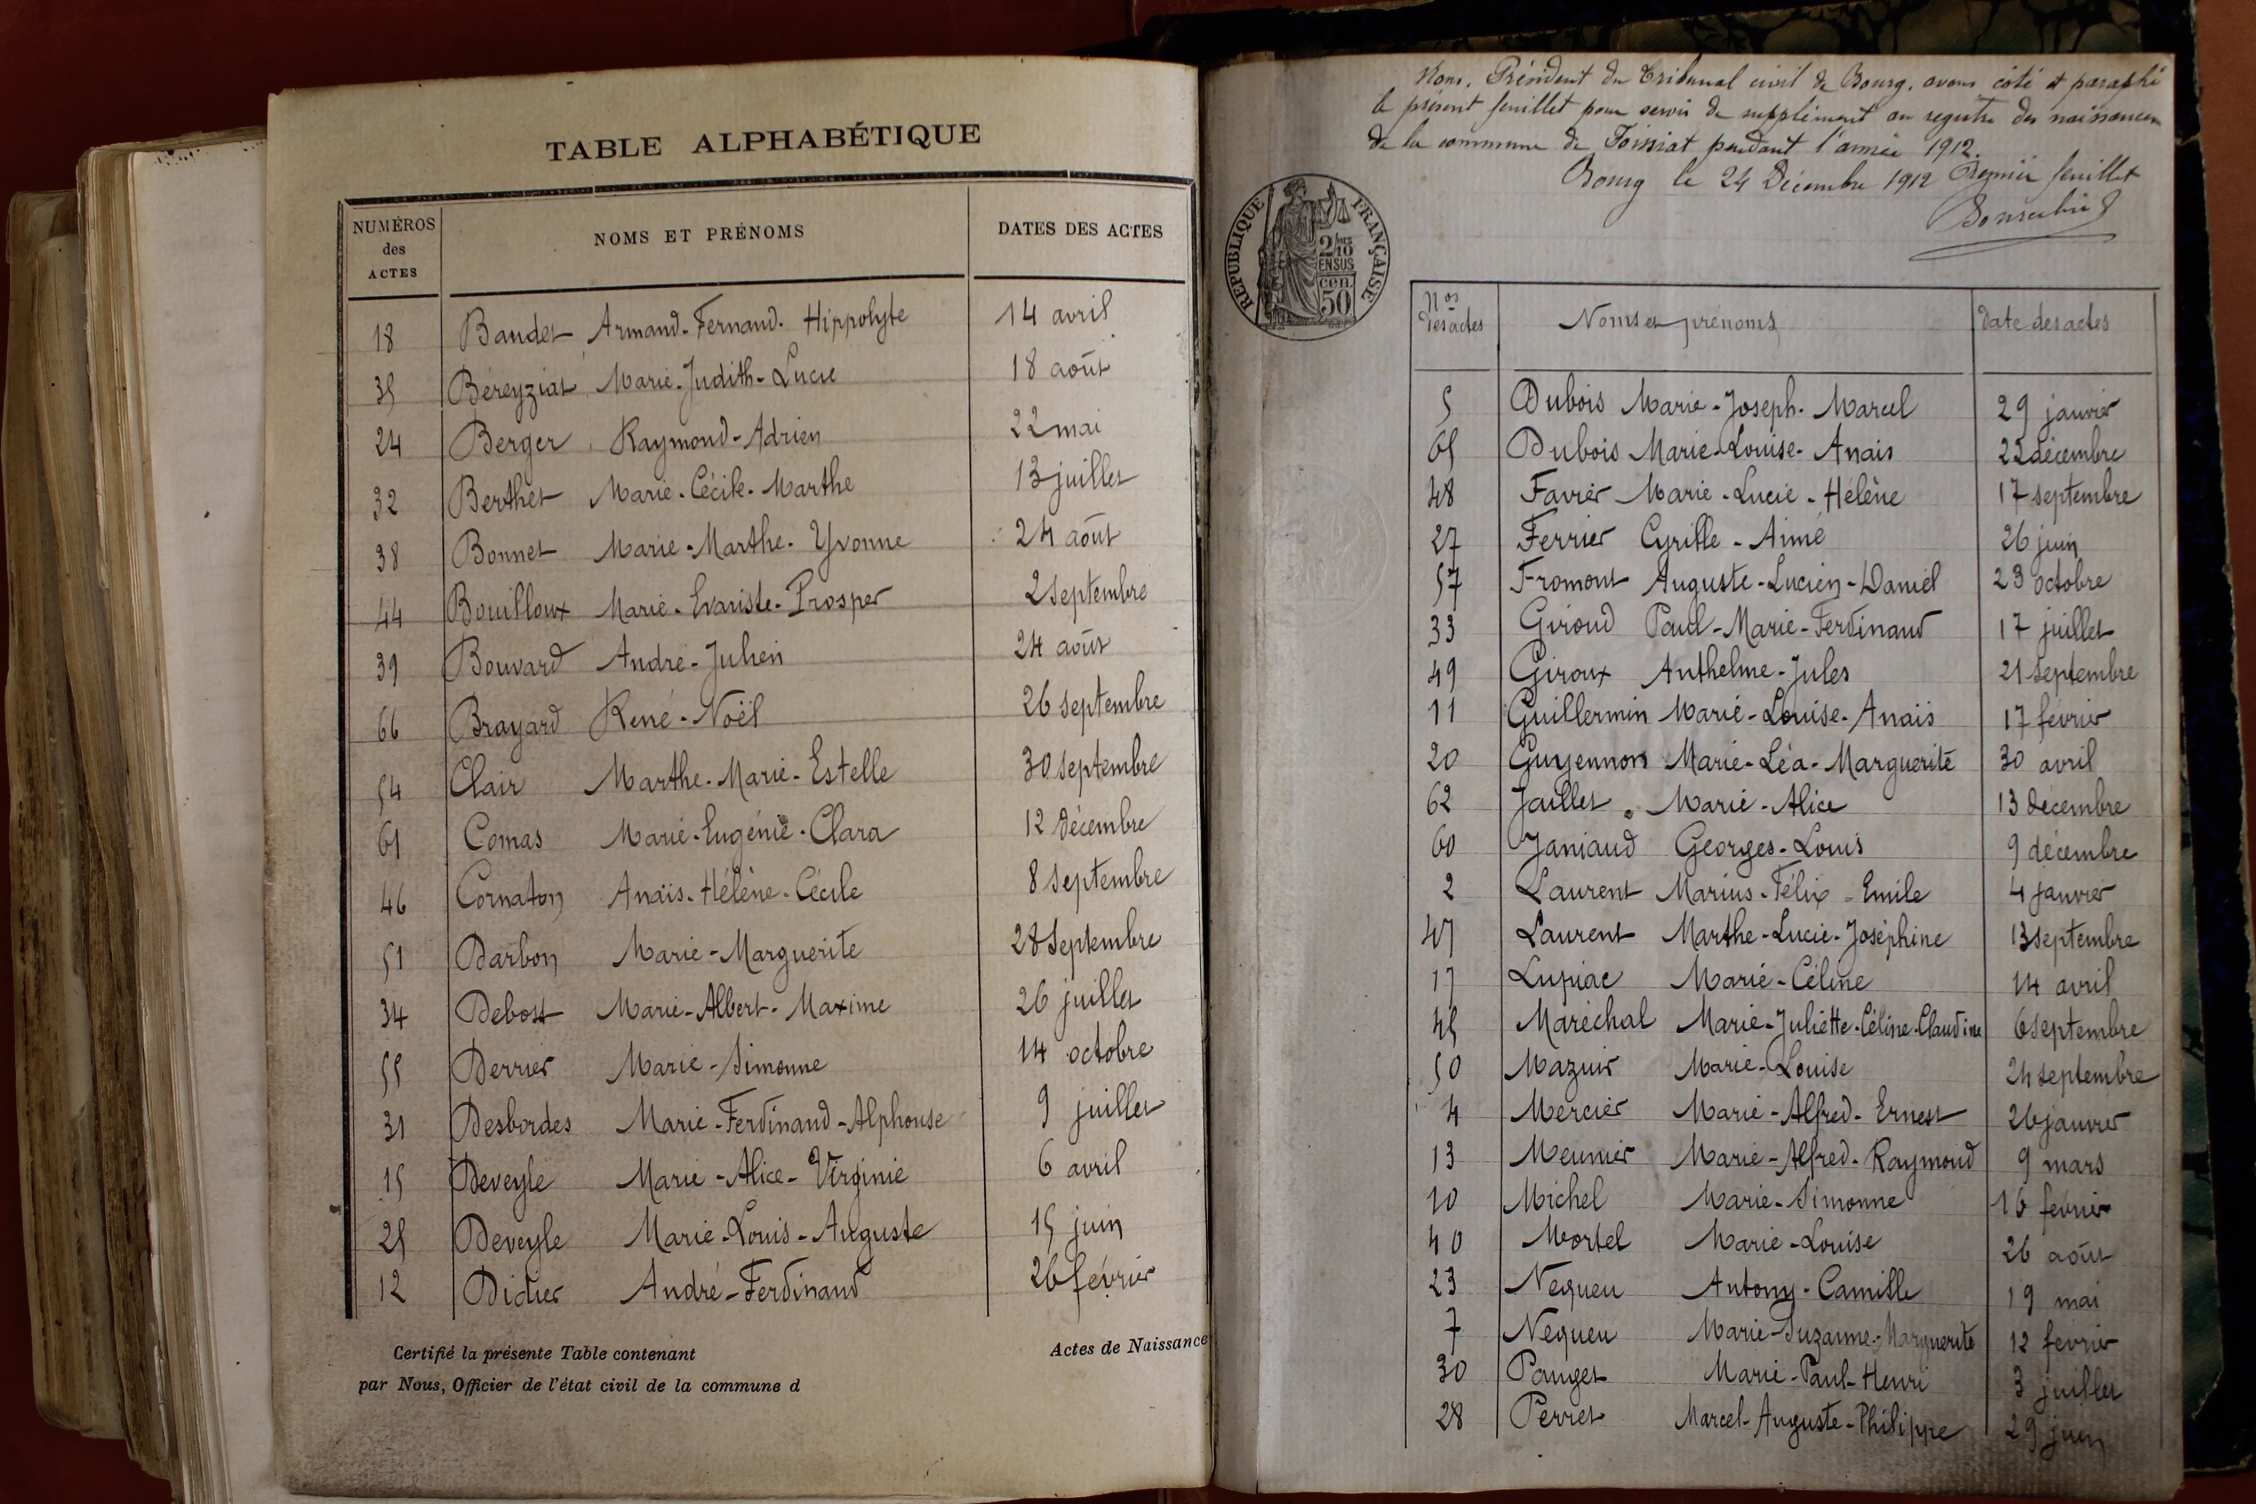 TABLE ALPHABÉTIQUE
NUMÉROS des ACTES NOMS ET PRÉNOMS DATES DES ACTES
18 Baudet Armand-Fernand-Hippolyte 14 avril
35 Béreyziat Marie-Judith-Lucie 18 août
24 Berger Raymond-Adrien 22 mai
32 Berthet Marie-Cécile-Marthe 13 juillet
38 Bonnet Marie-Marthe-Yvonne 24 août
44 Bouilloux Marie-Evariste-Prosper 2 septembre
39 Bouvard André-Julien 24 août
66 Brayard René-Noël 26 septembre
54 Clair Marthe-Marie-Estelle 30 septembre
61 Comas Marie-Eugénie-Clara 12 décembre
46 Cornaton Anaïs-Hélène-Cécile 8 septembre
51 Darbon Marie-Marguerite 28 septembre
34 Debost Marie-Albert-Maxime 26 juillet
55 Derrier Marie-Simonne 14 octobre
31 Desbordes Marie-Ferdinand-Alphonse 9 juillet
15 Deveyle Marie-Alice-Virginie 6 avril
25 Deveyle Marie-Louis-Auguste 15 juin
12 Didier André-Ferdinand 26 février
Certifié la présente Table contenant Actes de Naissance
par Nous, Officier de l'état civil de la commune d
Nous, Président du Tribunal civil de Bourg, avons coté et paraphé
le présent feuillet pour servir de supplément au registre des naissances
de la commune de Foissiat pendant l'année 1912.
Bourg le 24 Décembre 1912 Premier feuillet
RÉPUBLIQUE FRANÇAISE
2/10 EN SUS
50 cen.
Nos des actes Noms et prénoms Date des actes
5 Dubois Marie-Joseph-Marcel 29 janvier
65 Dubois Marie-Louise-Anais 22 décembre
48 Favier Marie-Lucie-Hélène 17 septembre
27 Ferrier Cyrille-Aimé 26 juin
57 Fromont Auguste-Lucien-Daniel 23 octobre
33 Giroud Paul-Marie-Ferdinand 17 juillet
49 Giroux Anthelme-Jules 21 septembre
11 Guillermin Marie-Louise-Anaïs 17 février
20 Guyennon Marie-Léa-Marguerite 30 avril
62 Jaillet Marie-Alice 13 décembre
60 Janiaud Georges-Louis 9 décembre
2 Laurent Marius-Félix-Emile 4 janvier
47 Laurent Marthe-Lucie-Joséphine 13 septembre
17 Lupiac Marie-Céline 14 avril
45 Maréchal Marie-Juliette-Céline-Claudine 6 septembre
50 Mazuir Marie-Louise 24 septembre
4 Mercier Marie-Alfred-Ernest 26 janvier
13 Meunier Marie-Alfred-Raymond 9 mars
10 Michel Marie-Simonne 16 février
40 Mortel Marie-Louise 26 août
23 Nequeu Antony-Camille 19 mai
7 Nequeu Marie-Suzanne-Marguerite 12 février
30 Pauget Marie-Paul-Henri 3 juillet
28 Perret Marcel-Auguste-Philippe 29 juin